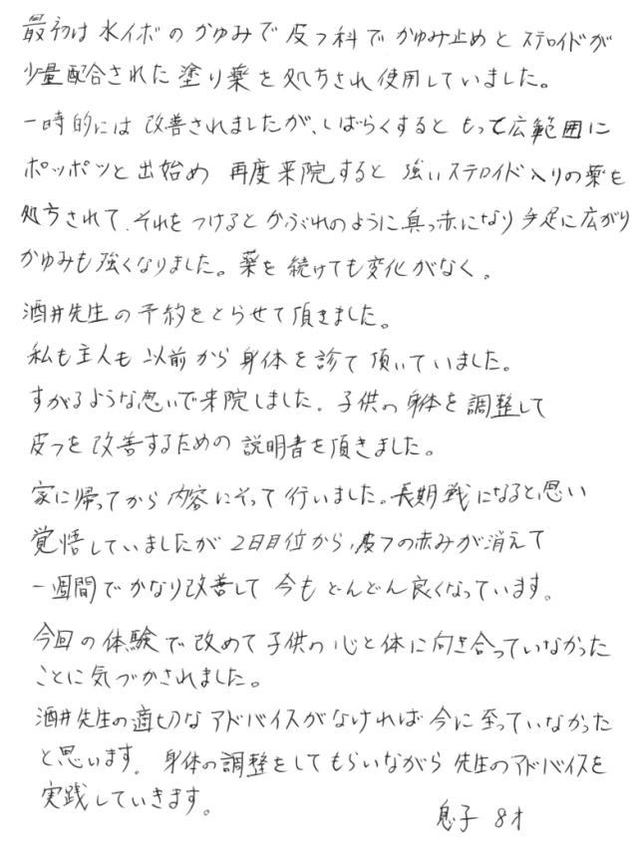 最初は水イボのかゆみで皮フ科でかゆみ止めとステロイドが
少量配合された塗り薬を処ちされ使用していました。
一時的には改善されましたが、しばらくするともっと広範囲に
ポッポツと出始め 再度来院すると 強いステロイド入りの薬を
処方されて、それをつけるとかぶれのように真っ赤になり手足に広がり
かゆみも強くなりました。薬を続けても変化がなく。
酒井先生の予約をとらせて頂きました。
私も主人も以前から身体を診て頂いていました。
すがるような思いで来院しました。子供の身体を調整して
皮フを改善するための説明書を頂きました。
家に帰ってから内容にそって行いました。長期戦になると思い
覚悟していましたが2日目位から、皮フの赤みが消えて
一週間でかなり改善して今もどんどん良くなっています。
今回の体験で改めて子供の心と体に向き合っていなかった
ことに気づかされました。
酒井先生の適切なアドバイスがなければ今に至っていなかった
と思います。身体の調整をしてもらいながら先生のアドバイスを
実践していきます。
息子 8才